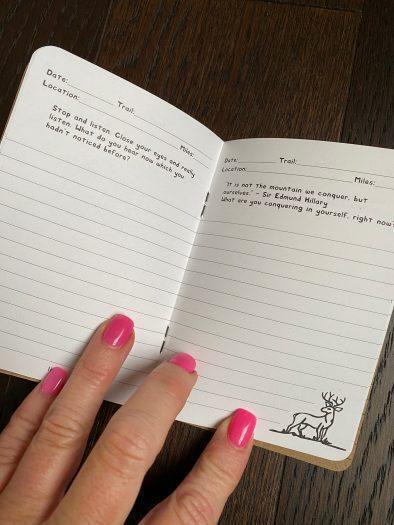 Date: Trail:
Location: Miles:
Stop and listen. Close your eyes and really
listen. What do you hear now which you
hadn't noticed before?
Date: Trail:
Location: Miles:
"It is not the mountain we conquer, but
ourselves." - Sir Edmund Hillary
What are you conquering in yourself, right now?